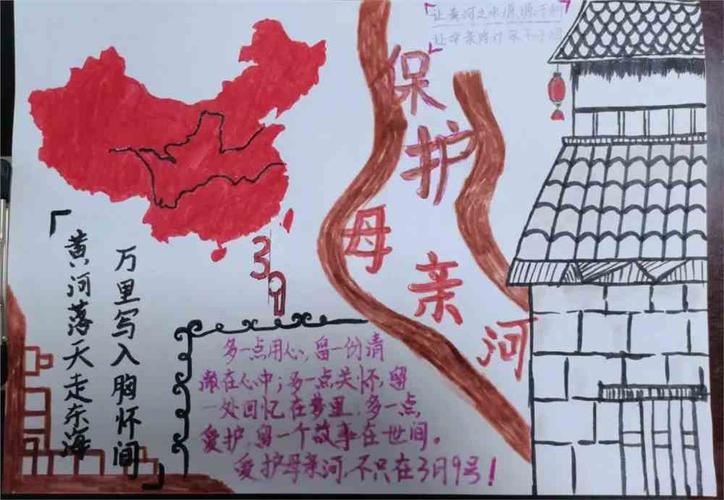 让黄河之水源源不
保护
母亲河
39
「黄河落天走东海
万里写入胸怀间
多一点用心，留一份清
澈在心中；多一点关怀，留
一处回忆在梦里，多一点
爱护，留一个故事在世间。
爱护母亲河，不只在3月9号！